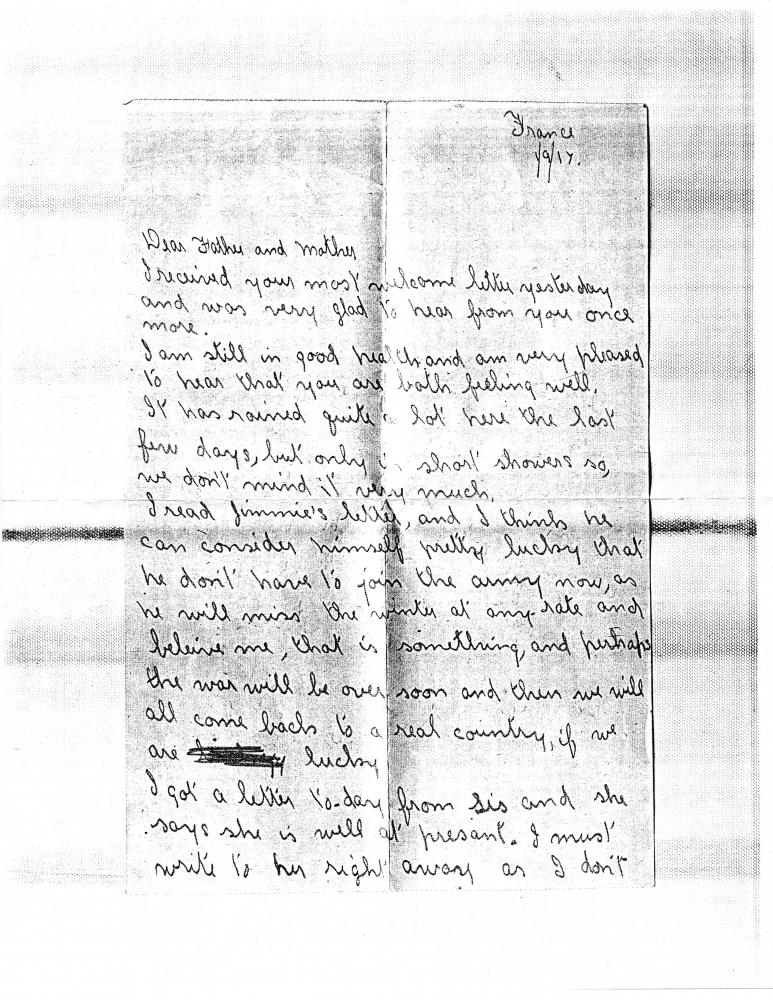 France
1/9/17.
Dear Father and Mother
I received your most welcome letter yesterday
and was very glad to hear from you once
more.
I am still in good health and am very pleased
to hear that you are both feeling well.
It has rained quite a lot here the last
few days, but only in short showers so,
we don't mind it very much.
I read Jimmie's letter, and I think he
can consider himself pretty lucky that
he don't have to join the army now, as
he will miss the winter at any rate and
beleive me, that is something, and perhaps
the war will be over soon and then we will
all come back to a real country, if we
are lucky
I got a letter to-day from Sis and she
says she is well at presant. I must
write to her right away as I don't